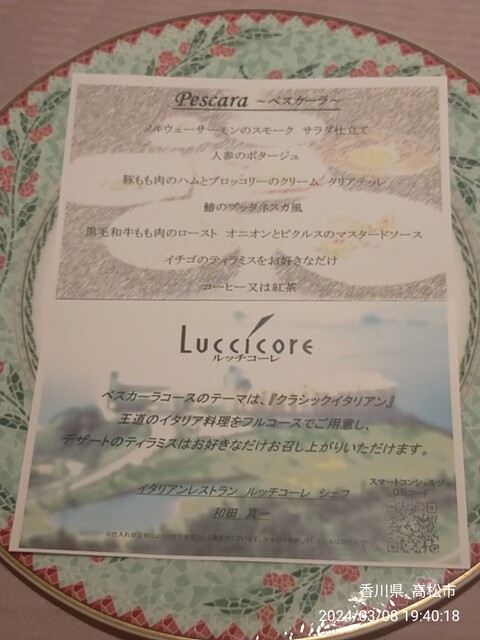 Pescara ～ペスカーラ～
ノルウェーサーモンのスモーク サラダ仕立て
人参のポタージュ
豚もも肉のハムとブロッコリーのクリーム タリアテッレ
鰆のプッタネスカ風
黒毛和牛もも肉のロースト オニオンとピクルスのマスタードソース
イチゴのティラミスをお好きなだけ
コーヒー又は紅茶
Luccicore
ルッチコーレ
ペスカーラコースのテーマは、『クラシックイタリアン』
王道のイタリア料理をフルコースでご用意し、
デザートのティラミスはお好きなだけお召し上がりいただけます。
スマートコンシェルジュ
QRコード
イタリアンレストラン ルッチコーレ シェフ
和田 真一
香川県, 高松市
2024/03/08 19:40:18